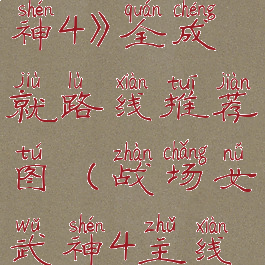 shén quán chéng
神4》全成
jiù lù xiàn tuī jiàn
就路线推荐
tú zhàn chǎng nǚ
图(战场女
wǔ shén zhǔ xiàn
武神4主线